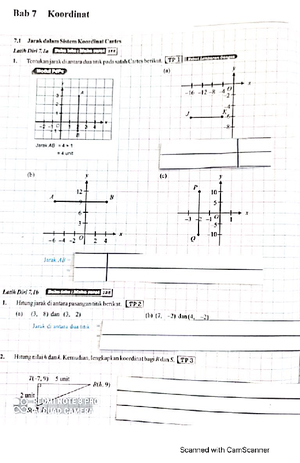 Bab 7 Koordinat
7.1 Jarak dalam Sistem Koordinat Cartes
Latih Diri 7.1a
1. Tentukan jarak di antara dua titik pada satah Cartes berikut. TP 1
(a)
y
x
-16 -12 -8 -4 O
-2
J K
-8
Jarak AB = 4 + 1
= 4 unit
(b)
(c)
y
12
A B
6
3
-6 -4 -2 O 2 4 x
y
P 10
5
-3 -2 -1 O 1 x
-5
Q -10
Jarak AB =
Latih Diri 7.1b
1. Hitung jarak di antara pasangan titik berikut. TP 2
(a) (3, 8) dan (3, 2)
(b) (7, -2) dan (4, -2)
Jarak di antara dua titik
2. Hitung nilai h dan k. Kemudian, lengkapkan koordinat bagi R dan S. TP 3
T(-7, 9) 5 unit
R(h, 9)
2 unit
REDMI NOTE 8 PRO
AI QUAD CAMERA
Scanned with CamScanner